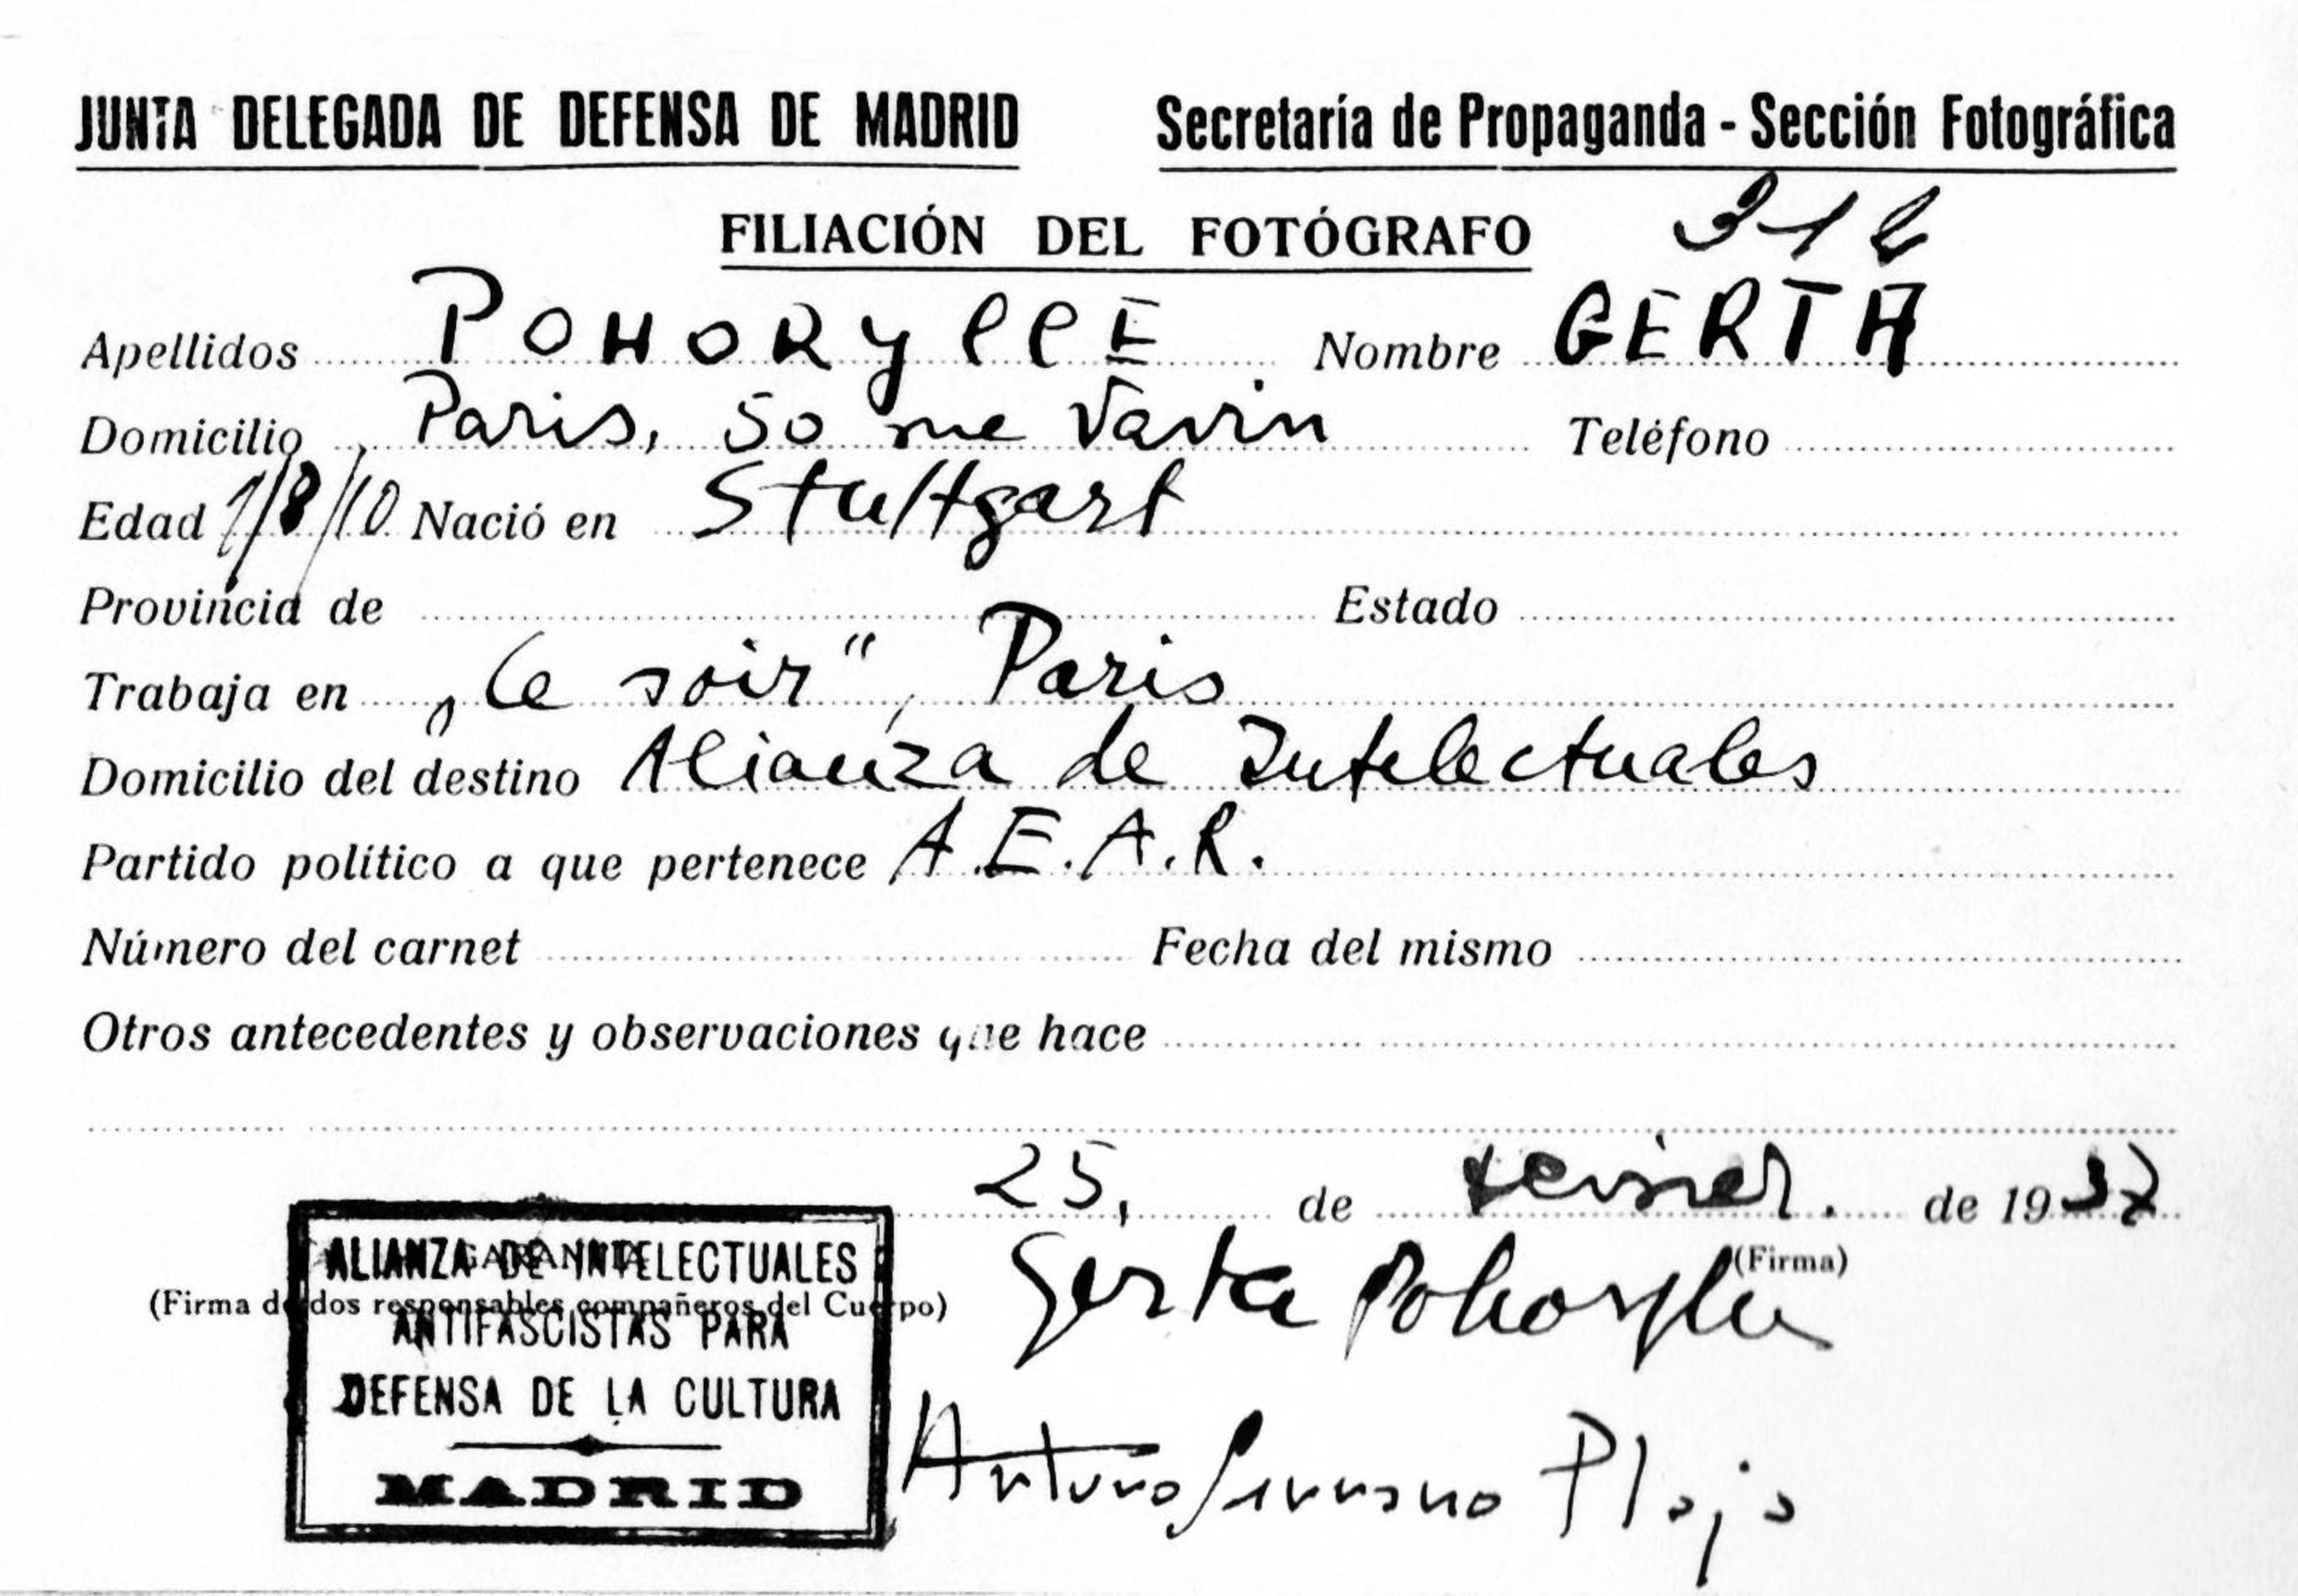 JUNTA DELEGADA DE DEFENSA DE MADRID Secretaría de Propaganda - Sección Fotográfica
FILIACIÓN DEL FOTÓGRAFO
Apellidos POHORYllE Nombre GERTA
Domicilio Paris, 50 rue Vavin Teléfono
Edad 1/8/10 Nació en Stuttgart
Provincia de Estado
Trabaja en „Ce soir“, Paris
Domicilio del destino Alianza de Intelectuales
Partido político a que pertenece A.E.A.R.
Número del carnet Fecha del mismo
Otros antecedentes y observaciones que hace
25, de de 1937
(Firma)
GARANTIA
(Firma de dos responsables compañeros del Cuerpo)
Gerta Pohorylle
ALIANZA DE INTELECTUALES
ANTIFASCISTAS PARA
DEFENSA DE LA CULTURA
MADRID
Arturo Serrano Plaja